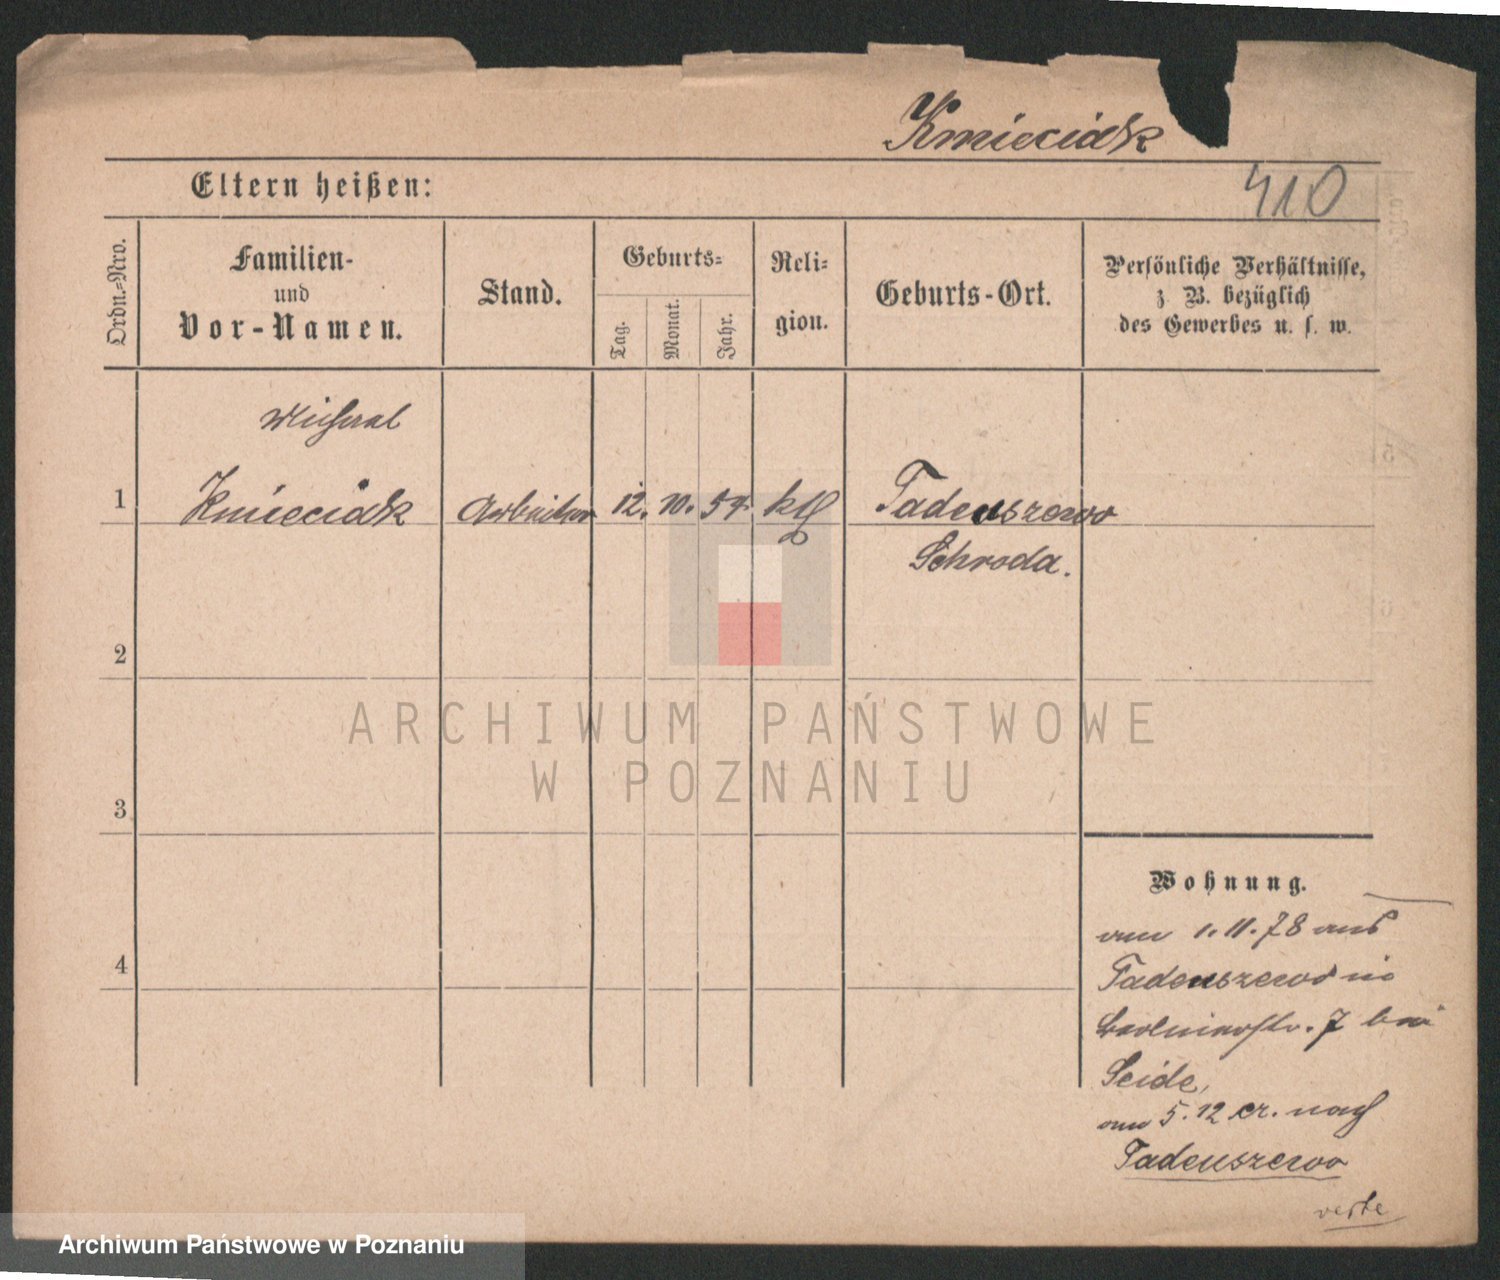 Kmieciak
Eltern heißen:
410
Ordn.-Nro.
Familien-
und
Vor-Namen.
Stand.
Geburts-
Tag.
Monat.
Jahr.
Reli-
gion.
Geburts-Ort.
Persönliche Verhältnisse,
z. B. bezüglich
des Gewerbes u. s. w.
Michael
1 Kmieciak Arbeiter 12. 10. 54. kth Tadeuszewo
Schroda.
2
ARCHIWUM PAŃSTWOWE
W POZNANIU
3
4
Wohnung.
am 1. 11. 78 aus
Tadeuszewo in
Berlinerstr. 7 bei
Seide,
am 5. 12 cr. nach
Tadeuszewo
verte
Archiwum Państwowe w Poznaniu